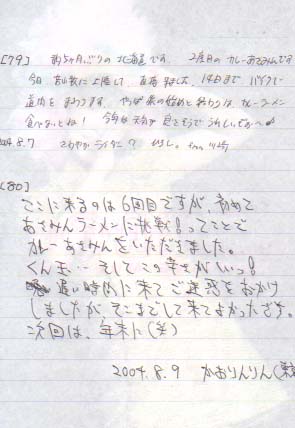 [79] 約5ヶ月ぶりの北海道です。2度目のカレーあさみんです
今日 に上陸して 直 来ました。14日まで バイクで
道内をまわります。やっぱ旅の始めと終わりは カレーラーメン
食べないとね! 今年は天気が良さそうでうれしい
2004.8.7 さわやかライダー? from 川崎
[80]
ここに来るのは6回目ですが、初めて
あさみんラーメンに挑戦!ってことで
カレーあさみんをいただきました。
くん玉… そしてこの辛さがいいっ!
遅い時間に来てご迷惑をおかけ
しましたが、そこまでして来てよかったです。
次回は、年末に(笑)
2004.8.9 かおりんりん(東